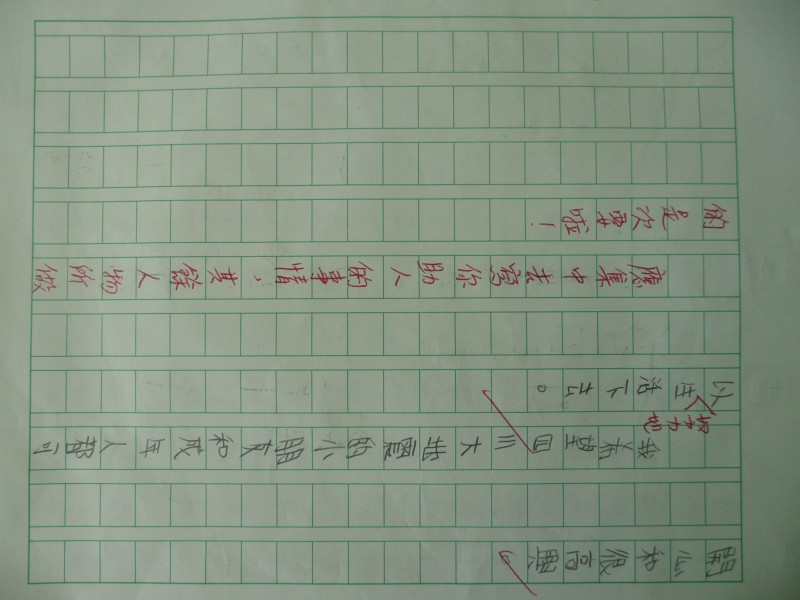 開心和很高興。
我希望四川大地震的小朋友和成年人都可
努力地
以生活下去。
應集中去寫你助人的事情，其餘人物所做
的是次要啦！